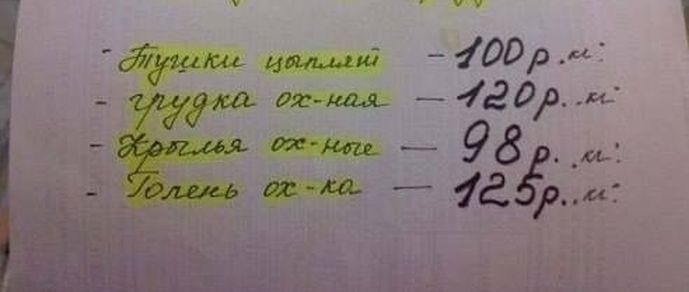 - Тушки цыплят - 100р.
- грудка ох-ная - 120р.
- Крылья ох-ные - 98р.
- Голень ох-ка - 125р.